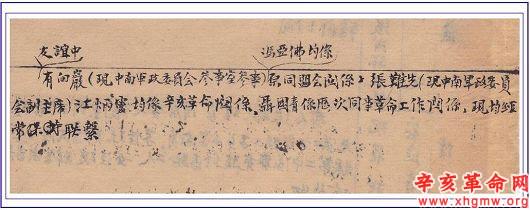 友誼中 馮亞佛均係
有向巖(現中南軍政委員会參事室參事)原同盟会関係、張難先(現中南軍政委員
会副主席)江炳靈均係辛亥革命関係、聶国青係歷次同事革命工作関係,現均經
常保持联繫
辛亥革命网
www.xhgmw.org